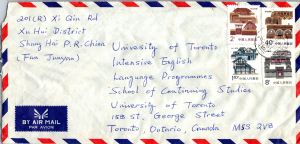 201(R) Xi Qin Rd
Xu Hui District
Shang Hai P.R. China
(Fan Junyou)
University of Toronto
Intensive English
Language Programmes
School of Continuing Studies
University of Toronto
158 St. George Street
Toronto, Ontario, Canada M5S 2V8
BY AIR MAIL
PAR AVION
中国人民邮政
中国人民邮政
中国人民邮政
中国人民邮政
40
10
8